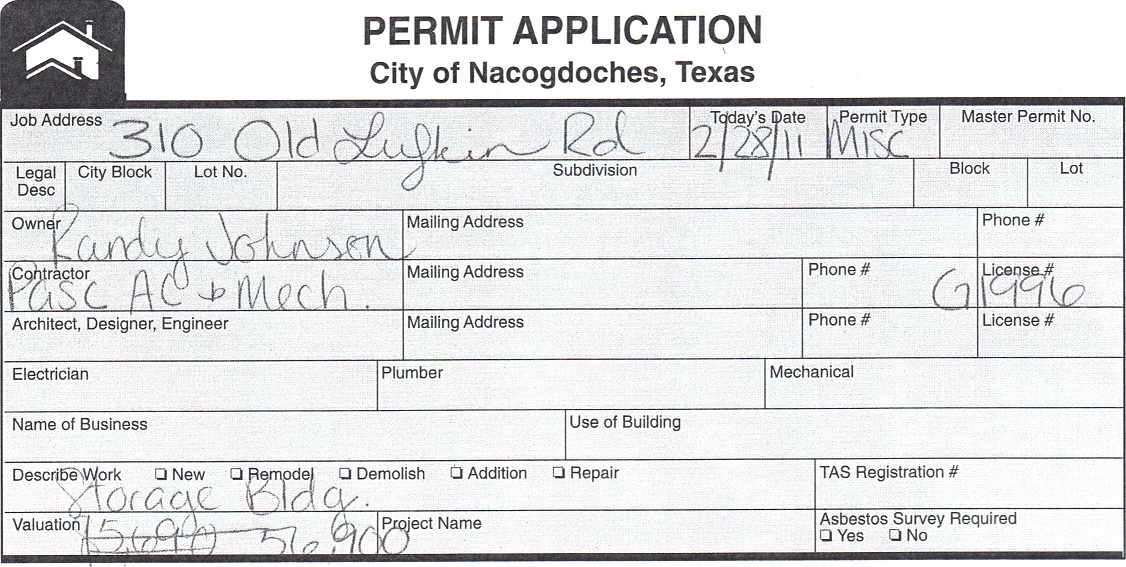 PERMIT APPLICATION
City of Nacogdoches, Texas
Job Address 310 Old Lufkin Rd Today's Date 2/28/11 Permit Type Misc Master Permit No.
Legal Desc City Block Lot No. Subdivision Block Lot
Owner Randy Johnson Mailing Address Phone #
Contractor Pasc AC & Mech. Mailing Address Phone # License # G1996
Architect, Designer, Engineer Mailing Address Phone # License #
Electrician Plumber Mechanical
Name of Business Use of Building
Describe Work ❏ New ❏ Remodel ❏ Demolish ❏ Addition ❏ Repair TAS Registration #
Storage Bldg.
Valuation 56,900 Project Name Asbestos Survey Required
❏ Yes ❏ No